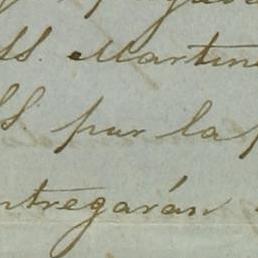 SS. Martine
S. por la p
ntregarán